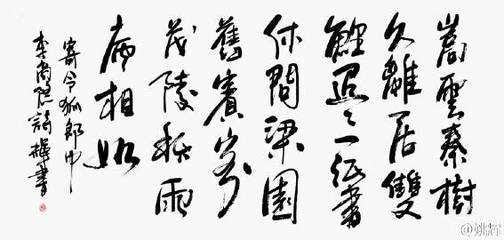 嵩雲秦樹
久離居雙
鯉迢々一紙書
休問梁園
舊賓客
茂陵秋雨
病相如
寄令狐郎中
李商隐詩輝書
@姚辉